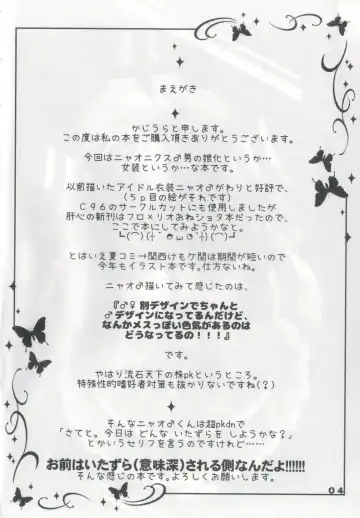 まえがき
かじうらと申します。
この度は私の本をご購入頂きありがとうございます。
今回はニャオニクス♂男の娘化というか…
女装というか…な本です。
以前描いたアイドル衣装ニャオ♂がわりと好評で、
（５ｐ目の絵がそれです）
Ｃ９６のサークルカットにも使用しましたが
肝心の新刊はフロ×リオおねショタ本だったので、
ここで本にしてみようかなと。
とはいえ夏コミ→関西けもケ間は期間が短いので
今年もイラスト本です。仕方ないね。
ニャオ♂描いてみて感じたのは、
『♂♀別デザインでちゃんと
♂デザインになってるんだけど、
なんかメスっぽい色気があるのは
どうなってるの！！！』
です。
やはり流石天下の株pkというところ。
特殊性的嗜好者対策も抜かりないですね(？)
そんなニャオ♂くんは超pkdnで
「さてと。今日は どんな いたずらを しようかな？」
とかいうセリフを言うのですけれど…
お前はいたずら(意味深)される側なんだよ!!!!!!
そんな感じの本です。よろしくお願いします。
04